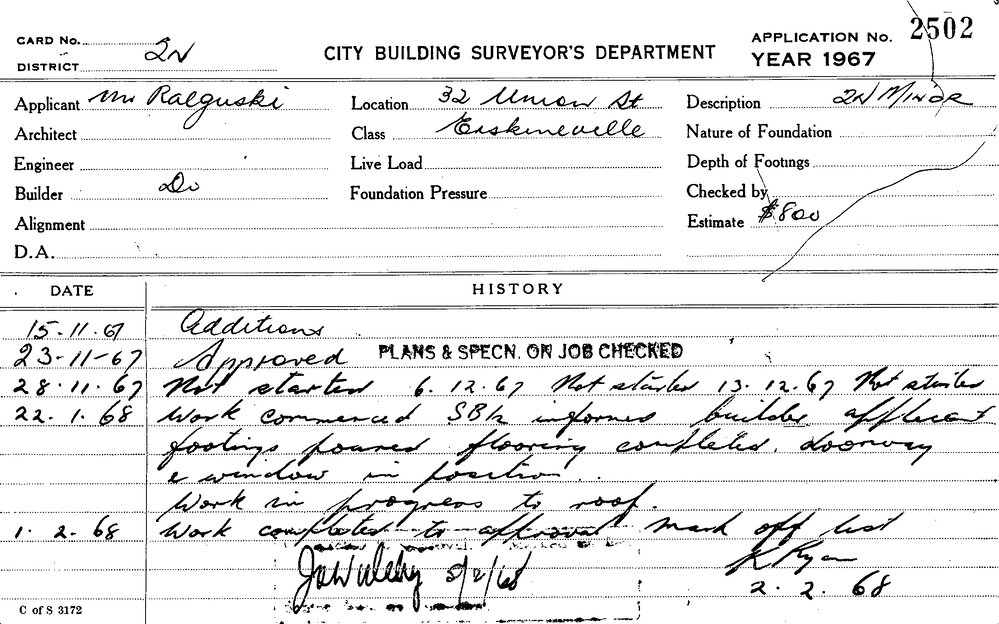 CARD No.
DISTRICT 2N
CITY BUILDING SURVEYOR'S DEPARTMENT
APPLICATION No. 2502
YEAR 1967
Applicant Mr Ralguski Location 32 Union St Description 2N Minor
Architect Class Erskineville Nature of Foundation
Engineer Live Load Depth of Footings
Builder Do Foundation Pressure Checked by
Alignment Estimate $800
D.A.
DATE HISTORY
15.11.67 Additions
23-11-67 Approved PLANS & SPECN. ON JOB CHECKED
28.11.67 Not started 6.12.67 Not started 13.12.67 Not started
22.1.68 Work commenced informed builder applicant
footings poured flooring completed. doorway
& window in position.
Work in progress to roof.
1.2.68 Work completed to approval mark off list
K Ryan
5/2/68
2.2.68
C of S 3172